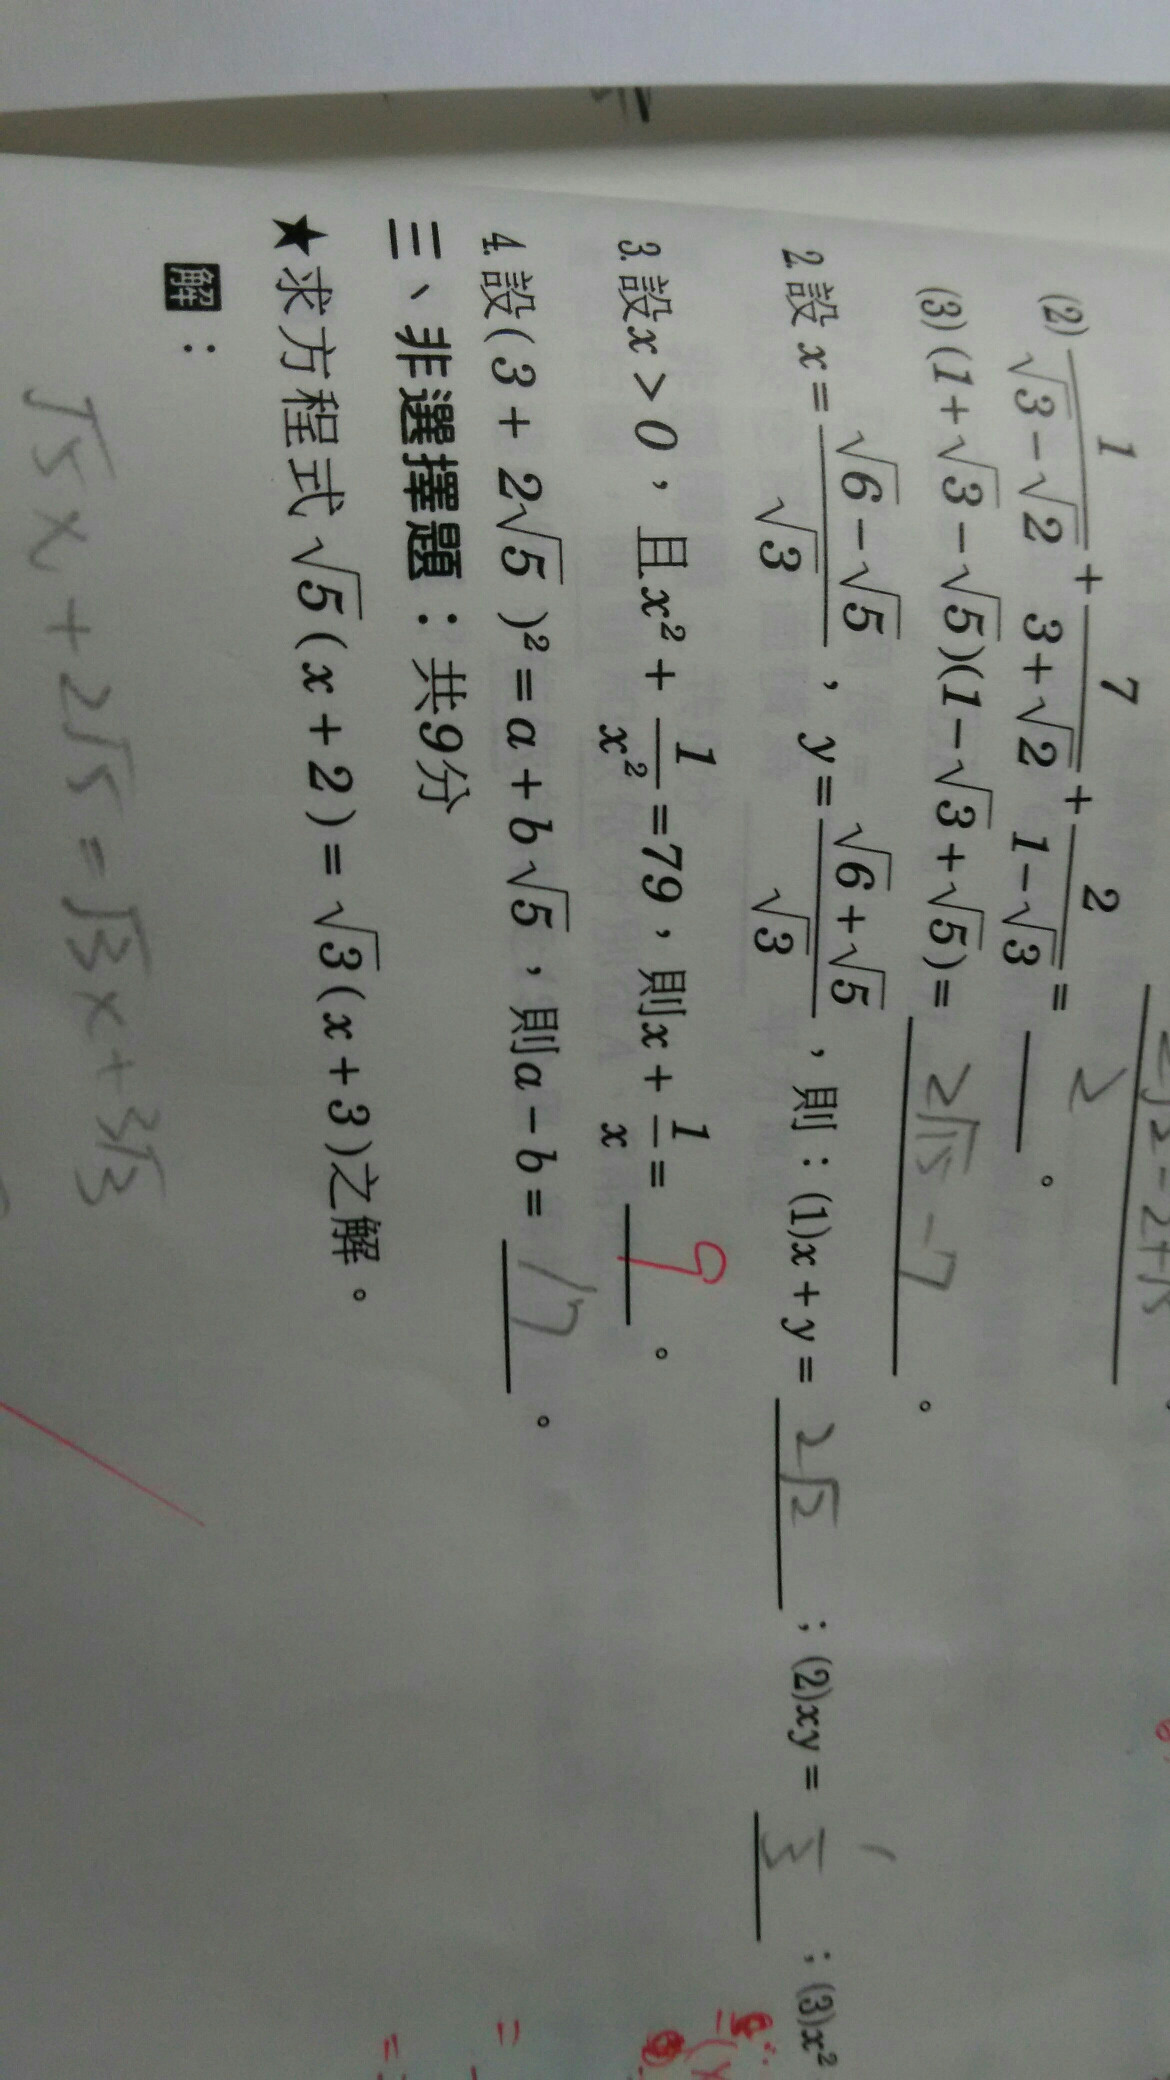 (2) 1/(√3−√2) + 7/(3+√2) + 2/(1−√3) = 2 。
(3) (1+√3−√5)(1−√3+√5) = 2√15 −7 。
2.設 x = (√6−√5)/√3 , y = (√6+√5)/√3 , 則:(1)x + y = 2√2 ; (2)xy = 1/3 ; (3)x²
3.設x > 0 , 且x² + 1/x² =79 , 則x + 1/x = 9 。
4.設(3 + 2√5 )² = a + b√5 , 則a − b = 17 。
三、非選擇題:共9分
★求方程式√5 ( x + 2 ) = √3 ( x + 3 )之解。
解:
√5 x + 2√5 = √3 x + 3√3